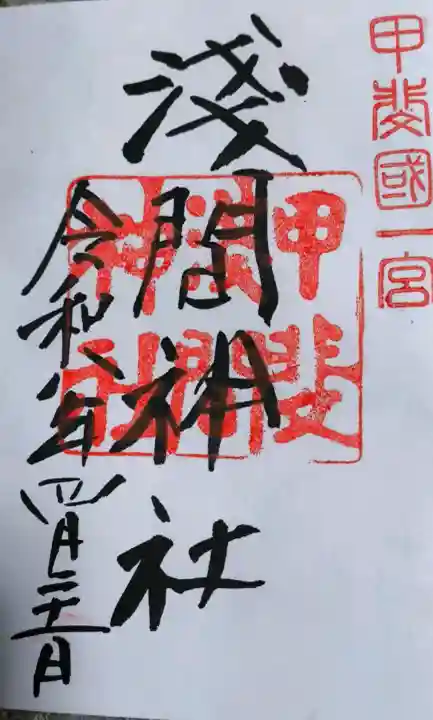 甲斐國一宮
淺間神社
甲斐
淺間
神社
令和 年四月二十一日